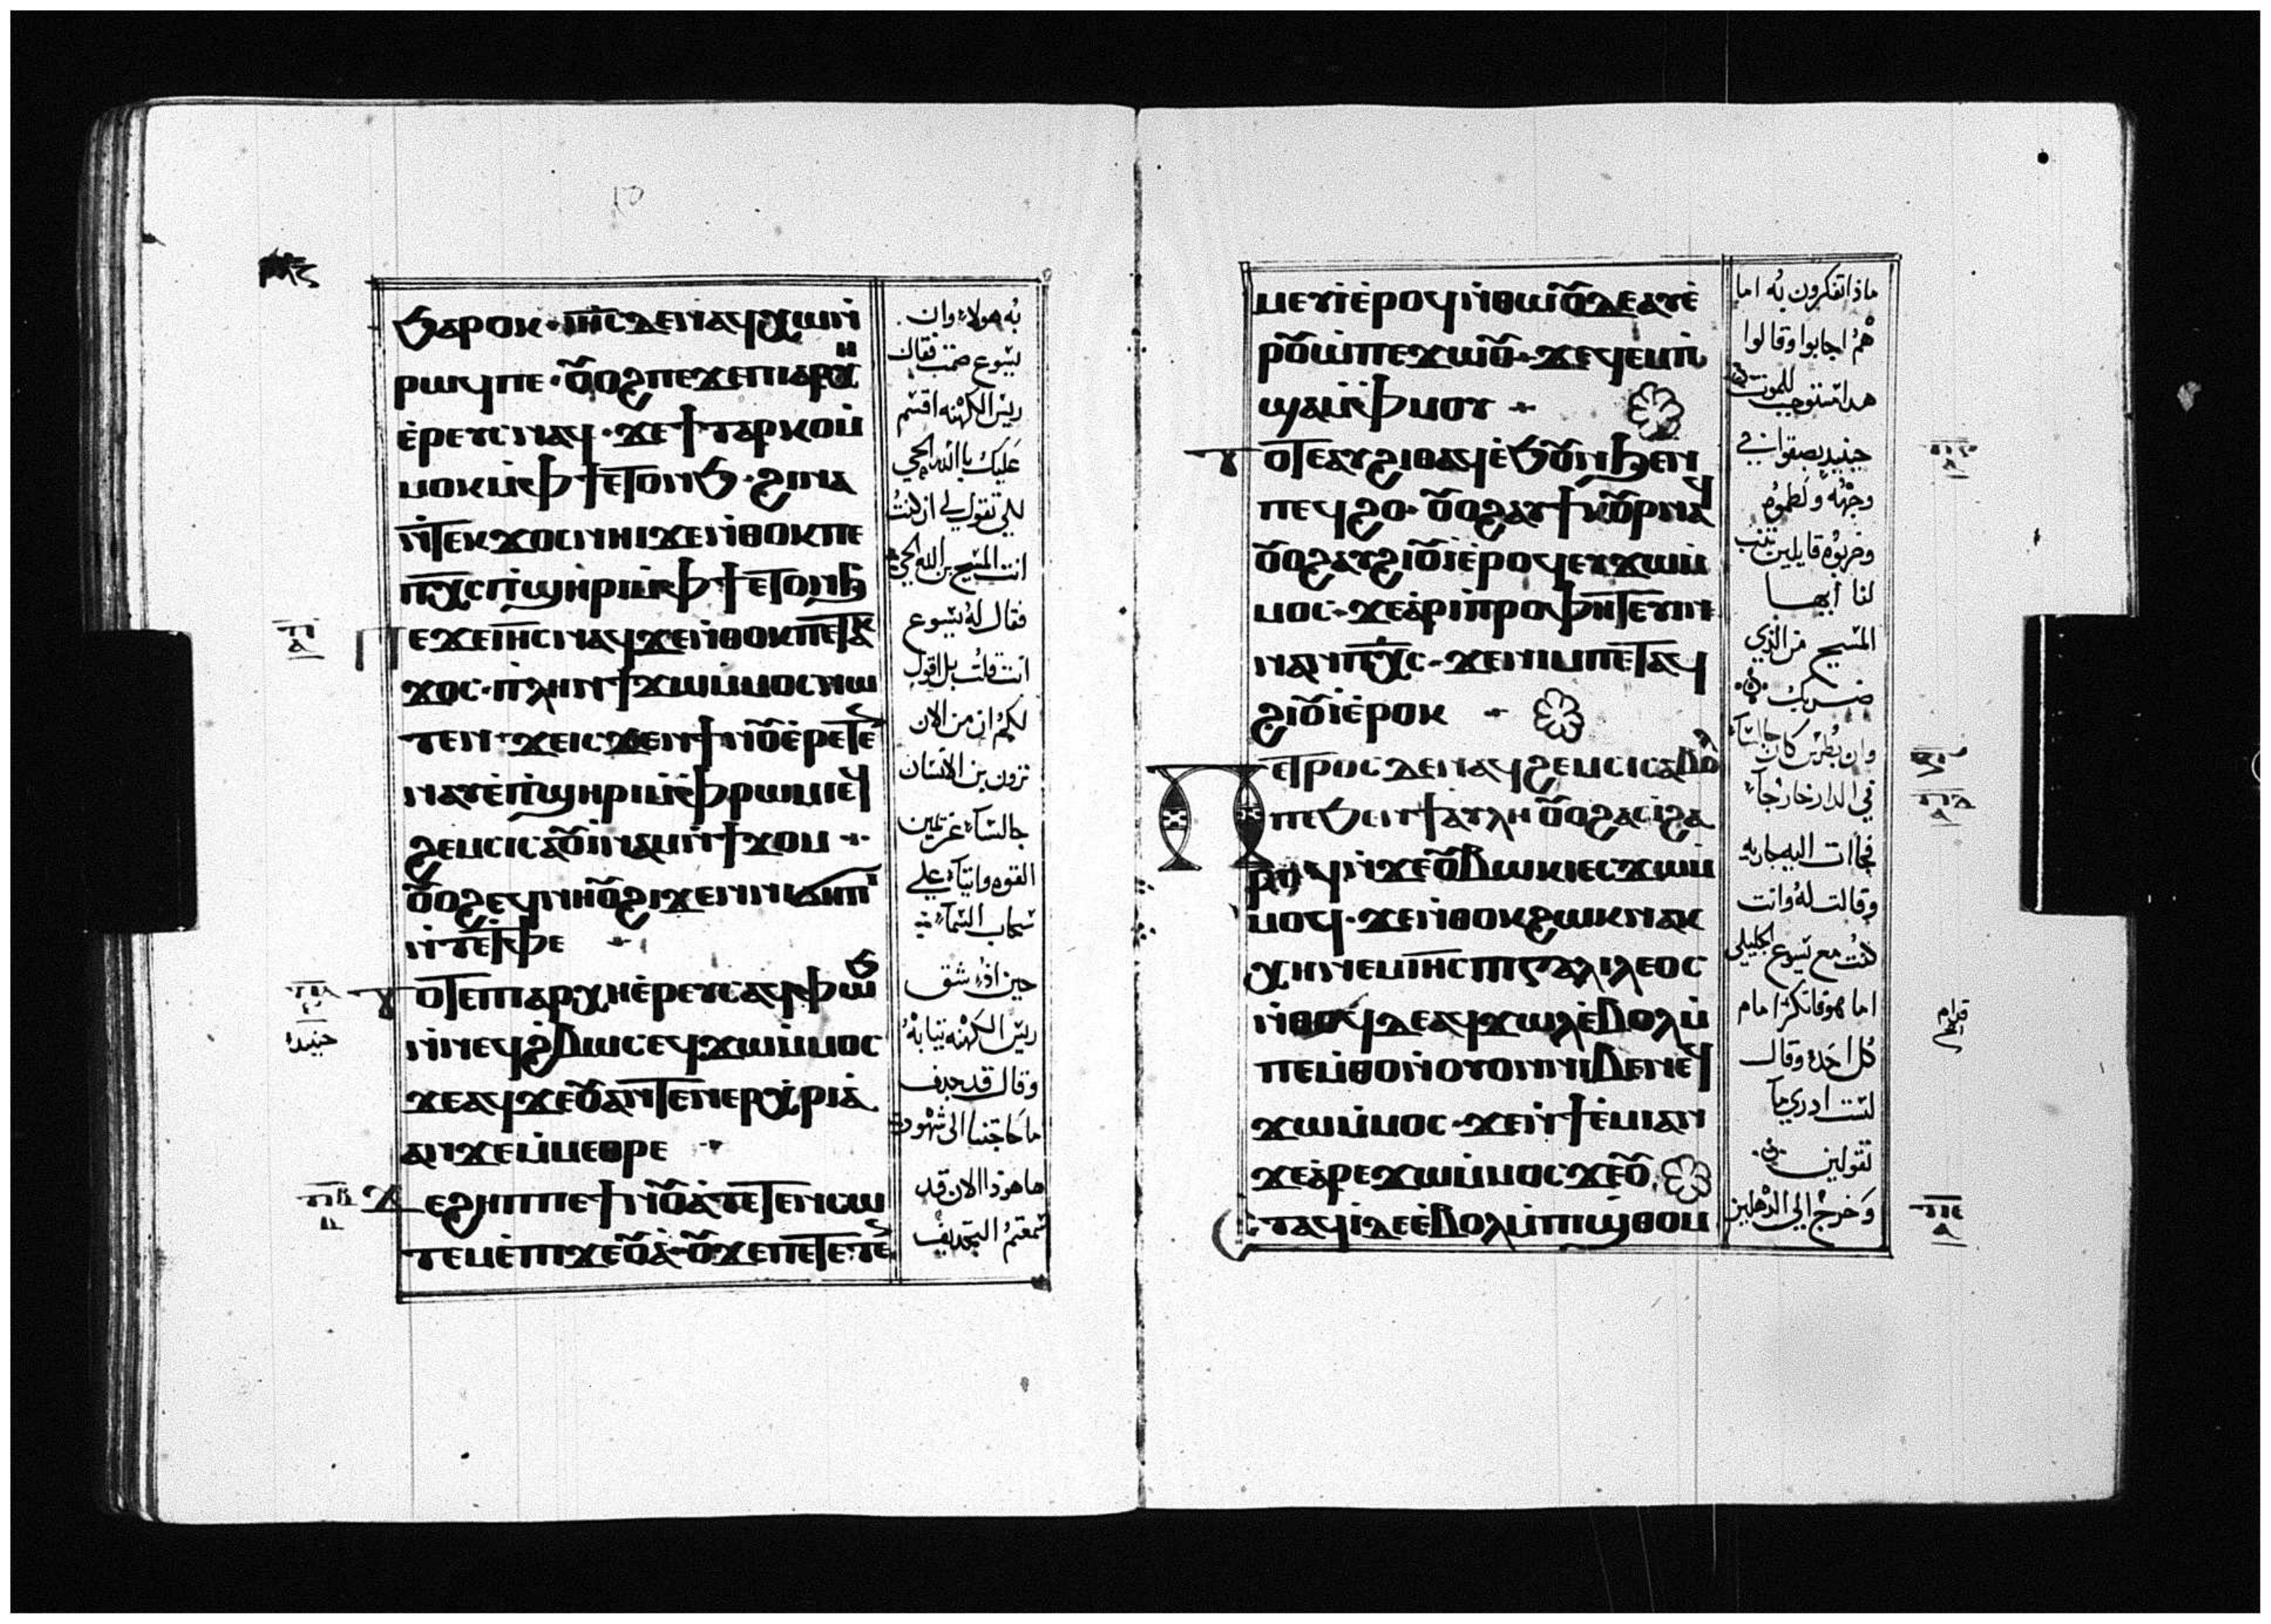 ϧⲁⲣⲟⲕ · ⲓⲏⲥ ⲇⲉ ⲛⲁϥⲭⲱ ⲛ̇
ⲣⲱϥ ⲡⲉ · ⲟⲩⲟϩ ⲡⲉϫⲉ ⲡⲓⲁⲣⲭⲏ
ⲉ̇ⲣⲉⲩⲥ ⲛⲁϥ · ϫⲉ ϯⲧⲁⲣⲕⲟ ⲙ̇
ⲙⲟⲕ ⲙ̇ⲫϯ ⲉⲧⲟⲛϧ · ϩⲓⲛⲁ
ⲛ̇ⲧⲉⲕϫⲟⲥ ⲛⲏⲓ ϫⲉ ⲛ̇ⲑⲟⲕ ⲡⲉ
ⲡⲭⲥ ⲡ̇ϣⲏⲣⲓ ⲙ̇ⲫϯ ⲉⲧⲟⲛϧ
ⲡⲉϫⲉ ⲓⲏⲥ ⲛⲁϥ ϫⲉ ⲛ̇ⲑⲟⲕ ⲡⲉⲧⲁⲕ
ϫⲟⲥ · ⲡⲗⲏⲛ ϯϫⲱ ⲙ̇ⲙⲟⲥ ⲛⲱ
ⲧⲉⲛ · ϫⲉ ⲓⲥϫⲉⲛ ϯⲛⲟⲩ ⲉ̇ⲣⲉⲧⲉ
ⲛⲁⲩ ⲉ̇ⲡ̇ϣⲏⲣⲓ ⲙ̇ⲫⲣⲱⲙⲓ ⲉϥ
ϩⲉⲙⲥⲓ ⲥⲁⲟⲩⲓⲛⲁⲙ ⲛ̇ϯϫⲟⲙ ⁘
ⲟⲩⲟϩ ⲉϥⲛⲏⲟⲩ ϩⲓϫⲉⲛ ⲛⲓϭⲏⲡⲓ
ⲛ̇ⲧⲉⲧ̇ⲫⲉ
ⲧⲟⲧⲉ ⲡⲓⲁⲣⲭⲏⲉ̇ⲣⲉⲩⲥ ⲁϥⲫⲱϧ
ⲛ̇ⲛⲉϥϩ̇ⲃⲱⲥ ⲉϥϫⲱ ⲙ̇ⲙⲟⲥ
ϫⲉ ⲁϥϫⲉⲟⲩⲁ ⲛ̇ⲧⲉⲛⲉⲣⲭⲣⲓⲁ
ⲁⲛ ϫⲉ ⲙ̇ⲙⲉⲑⲣⲉ
ϫⲉ ϩⲏⲡⲡⲉ ϯⲛⲟⲩ ⲁ̇ⲧⲉⲧⲉⲛⲥⲱ
ⲧⲉⲙ ⲉ̇ⲡⲓϫⲉⲟⲩⲁ̇ · ⲟⲩ ϫⲉ ⲡⲉⲧⲉⲧⲉ
به هولاء وان
يسوع صمت فقال
ريس الكهنه اقسم
عليك بالله الحي
لكي تقول لي ان كنت
انت المسيح بن الله الحي
فقال له يسوع
انت قلت بل اقول
لكم ان من الان
ترون بن الانسان
جالسا عن يمين
القوه واتيا على
سحاب السما
حينئذ شق
ريس الكهنه ثيابه
وقال قد جدف
ما حاجتنا الى شهود
ها هوذا الان قد
سمعتم التجديف
ⲙⲉⲩⲓ ⲉ̇ⲣⲟϥ ⲛ̇ⲑⲱⲟⲩ ⲇⲉ ⲁⲩⲉ̇
ⲣⲟⲩⲱ̇ ⲡⲉϫⲱⲟⲩ · ϫⲉ ϥⲉⲙⲡ̇
ϣⲁ ⲙ̇ⲫⲙⲟⲩ
ⲧⲟⲧⲉ ⲁⲩϩⲓⲑⲁϥ ⲉ̇ϧⲟⲩⲛ ϧⲉⲛ
ⲡⲉϥϩⲟ · ⲟⲩⲟϩ ⲁⲩϯⲕⲟⲩⲣ ⲛⲁϥ
ⲟⲩⲟϩ ⲁⲩϩⲓⲟⲩⲓ̇ ⲉ̇ⲣⲟϥ ⲉⲩϫⲱ ⲙ̇
ⲙⲟⲥ · ϫⲉ ⲁ̇ⲣⲓⲡ̇ⲣⲟⲫⲏⲧⲉⲩⲓⲛ
ⲛⲁⲛ ⲡⲭⲥ · ϫⲉ ⲛⲓⲙ ⲡⲉⲧⲁϥ
ϩⲓⲟⲩⲓ̇ ⲉ̇ⲣⲟⲕ
ⲡⲉⲧⲣⲟⲥ ⲇⲉ ⲛⲁϥϩⲉⲙⲥⲓ ⲥⲁⲃⲟⲗ
ⲡⲉ ϧⲉⲛ ϯⲁⲩⲗⲏ ⲟⲩⲟϩ ⲁⲥⲓ̇ ϩⲁ
ⲣⲟϥ ⲛ̇ϫⲉ ⲟⲩⲃⲱⲕⲓ ⲉⲥϫⲱ ⲙ̇
ⲙⲟⲥ · ϫⲉ ⲛ̇ⲑⲟⲕ ϩⲱⲕ ⲛⲁⲕ
ⲭⲏ ⲛⲉⲙ ⲓⲏⲥ ⲡⲓⲅⲁⲗⲓⲗⲉⲟⲥ
ⲛ̇ⲑⲟϥ ⲇⲉ ⲁϥϫⲱⲗ ⲉ̇ⲃⲟⲗ ⲙ̇
ⲡⲉⲙ̇ⲑⲟ ⲛ̇ⲟⲩⲟⲛ ⲛⲓⲃⲉⲛ ⲉϥ
ϫⲱ ⲙ̇ⲙⲟⲥ · ϫⲉ ⲛ̇ϯⲉ̇ⲙⲓ ⲁⲛ
ϫⲉ ⲁ̇ⲣⲉϫⲱ ⲙ̇ⲙⲟⲥ ϫⲉ ⲟⲩ
ⲉⲧⲁϥⲓ̇ ⲇⲉ ⲉ̇ⲃⲟⲗ ⲙ̇ⲡⲓϣⲑⲟⲙ
ماذا تفكرون به اما
هم اجابوا وقالوا
هذا مستوجب للموت
حينيد بصقوا في
وجهه ولطموه
وضربوه قايلين تنب
لنا ايها
المسيح من الذي
ضربك
وان بطرس كان جالسا
في الدار خارجا
فجاات اليه جاريه
وقالت له وانت
كنت مع يسوع الجليلي
اما هو فانكر امام
كل احد وقال
لست ادري ما
تقولين
وخرج الى الدهليز
قدام